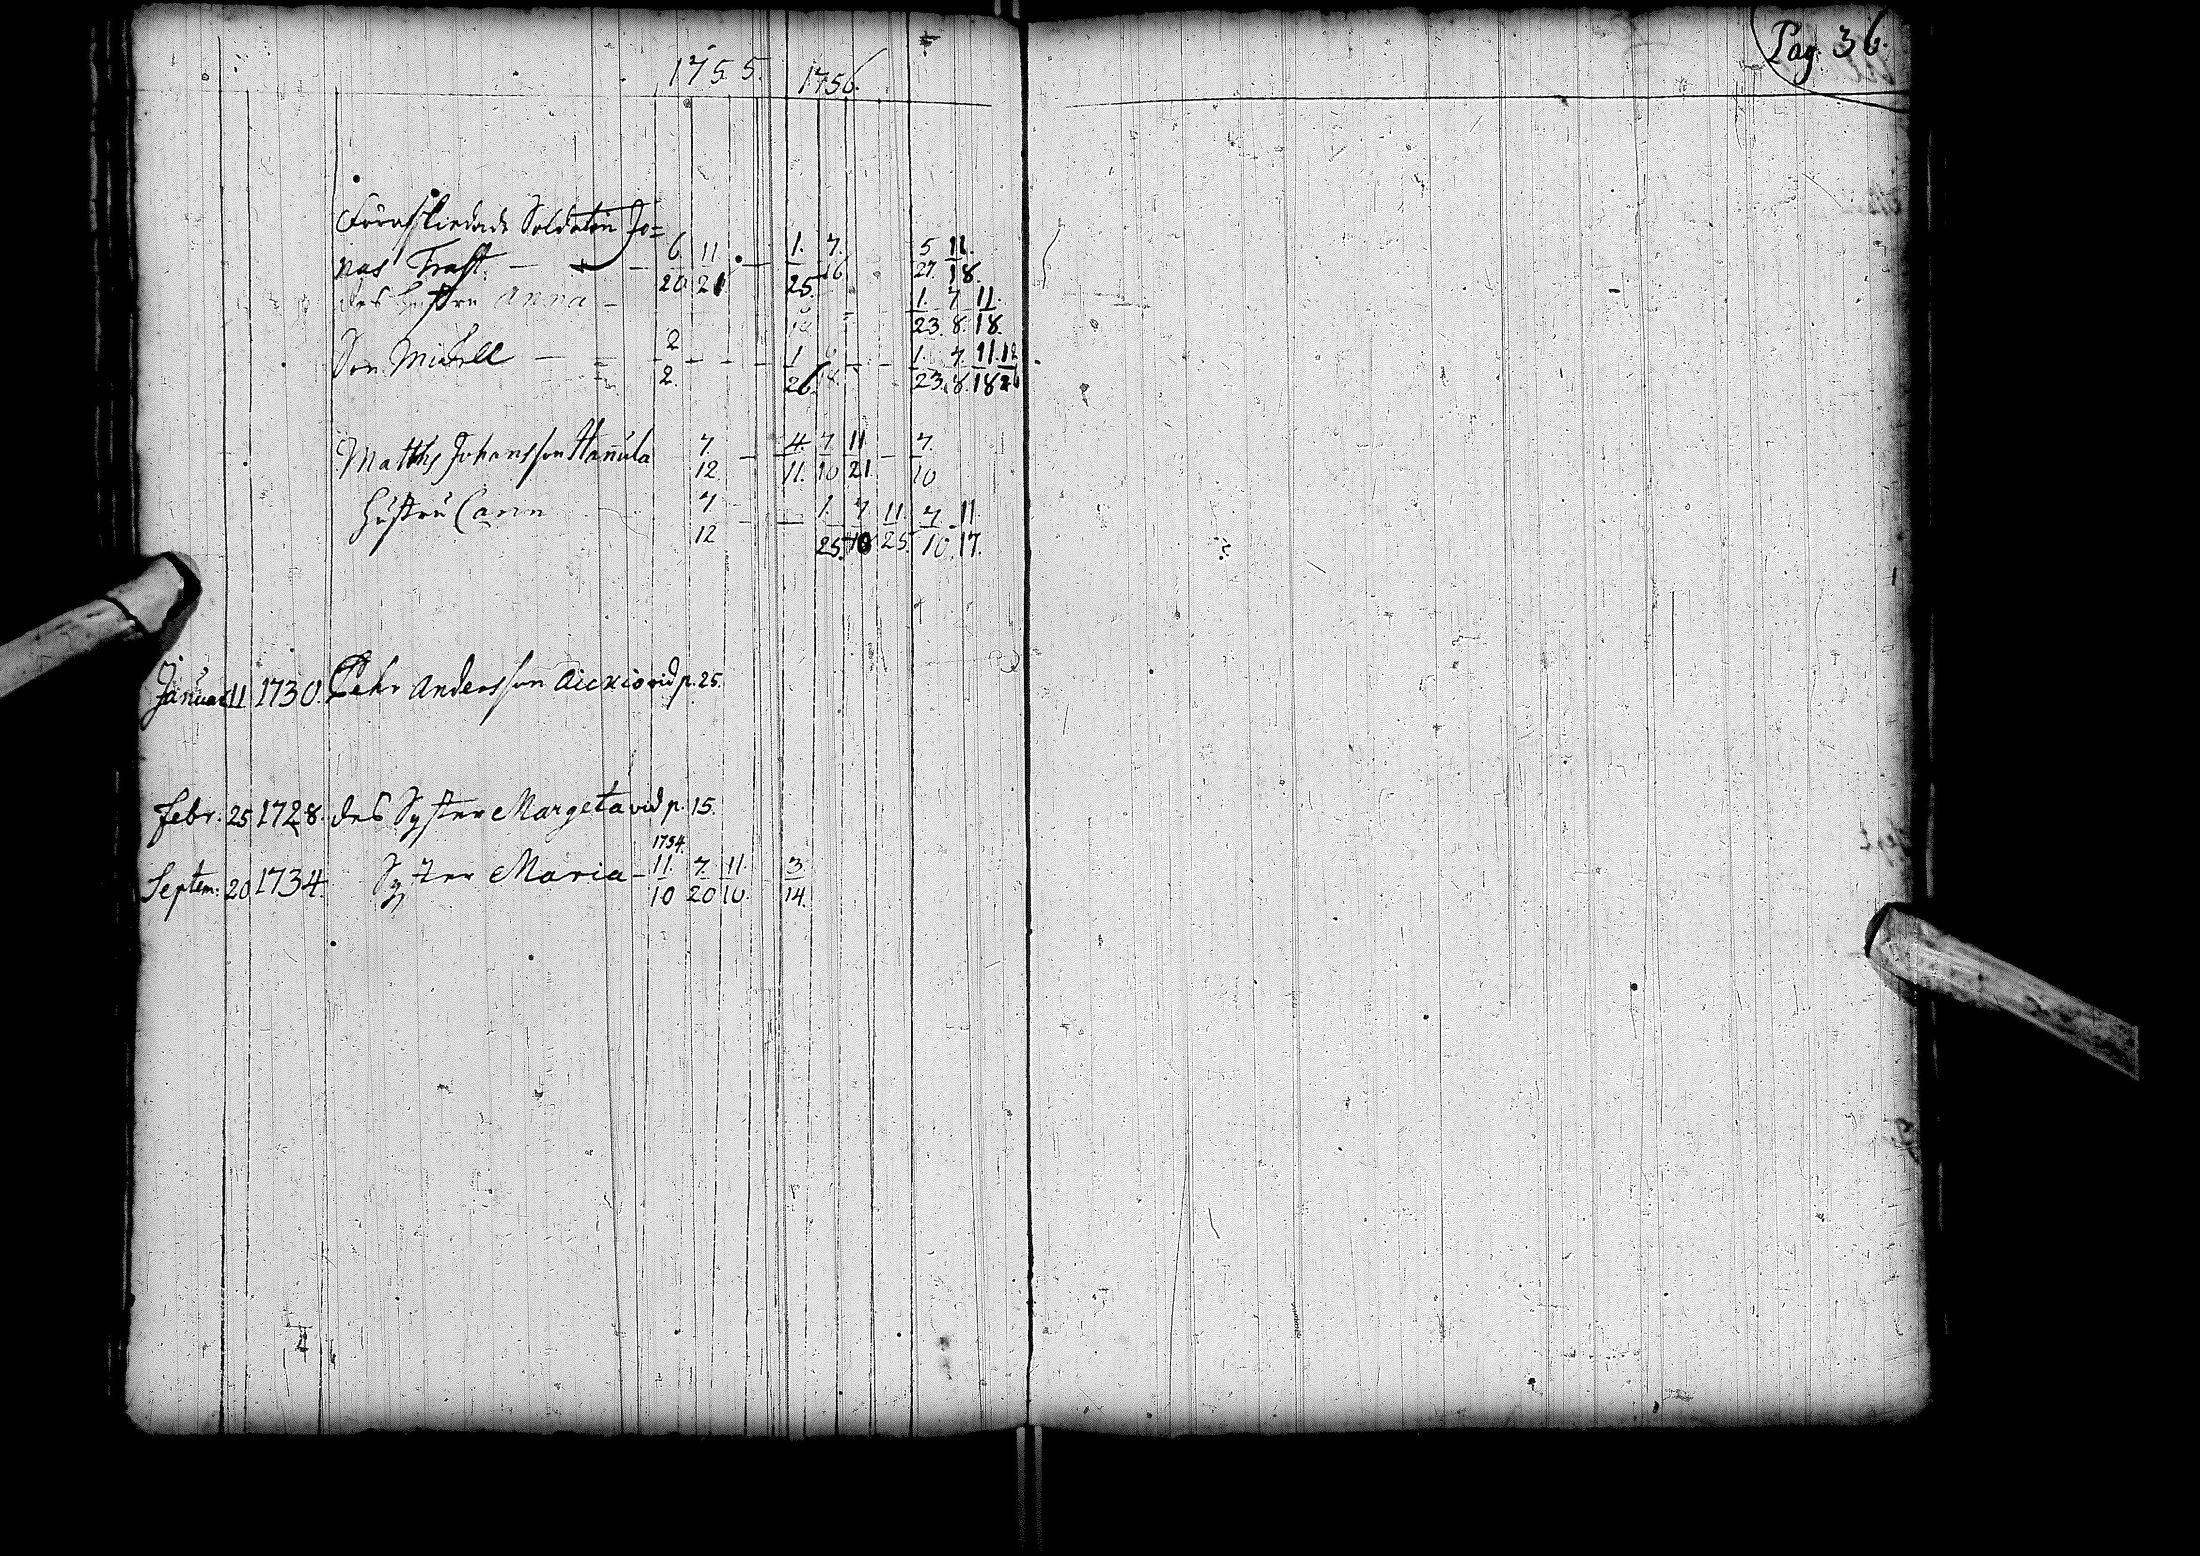 1755. 1756.
Pag. 36.
Förafskiedade Soldaten Jo=
nas Trast. — 6/20 11/21 — 1./25. 7./16. 5/27. 11./18.
des hustru Anna — 1./23. 7/8. 11./18.
Son Michell — = 2/2. - - - 1/26. 8. - - 1./23. 7./8. 11./18 12/26
Matths Johansson Hannula 7./12. — 4./11. 7/10 11/21. — 7./10
hustru Carin 7/12 — — 1./25. 7/10 11./25. 7./10. 11./17.
Januar 11 1730. Pehr Andersson Aickio vid p. 25.
Febr. 25 1728. des Syster Margeta vid p. 15.
1754.
Septem: 20 1734. Syster Maria — 11./10 7./20 11./10. 3/14.